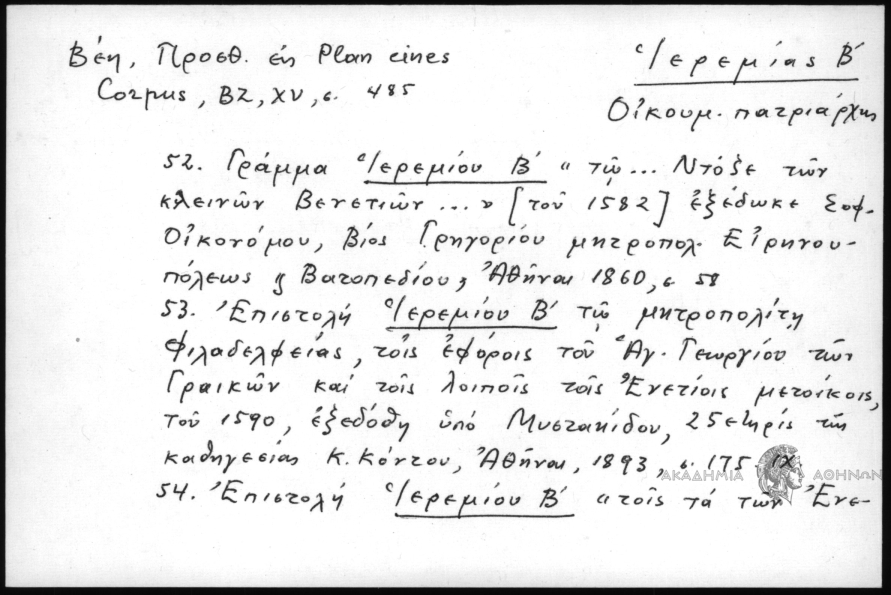 Βέη, Προσθ. εἰς Plan eines
Corpus, BZ, XV, σ. 485
Ἱερεμίας Β΄
Οἰκουμ. πατριάρχης
52. Γράμμα Ἱερεμίου Β΄ "τῷ... Ντόξε τῶν
κλεινῶν Βενετιῶν ..." [τοῦ 1582] ἐξέδωκε Σοφ.
Οἰκονόμου, Βίος Γρηγορίου μητροπολ. Εἰρηνου-
πόλεως ἢ Βατοπεδίου, Ἀθῆναι 1860, σ. 58
53. Ἐπιστολή Ἱερεμίου Β΄ τῷ μητροπολίτῃ
Φιλαδελφείας, τοῖς ἐφόροις τοῦ Ἁγ. Γεωργίου τῶν
Γραικῶν καί τοῖς λοιποῖς τοῖς Ἐνετίοις μετοίκοις,
τοῦ 1590, ἐξεδόθη ὑπό Μυστακίδου, 25ετηρίς τῆς
καθηγεσίας Κ. Κόντου, Ἀθῆναι, 1893, σ. 175. ΙΧ.
ΑΚΑΔΗΜΙΑ ΑΘΗΝΩΝ
54. Ἐπιστολή Ἱερεμίου Β΄ "τοῖς τά τῶν Ἐνε-